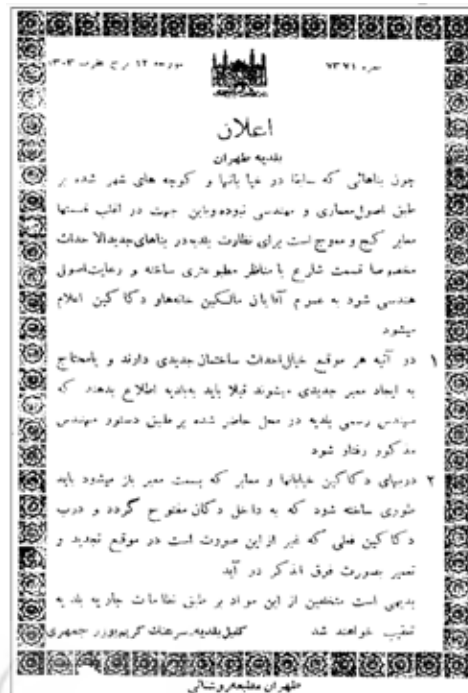 نمره ۷۳۷۱
مورخه ۱۲ برج عقرب ۱۳۰۳
اعلان
بلدیه طهران
چون بناهائی که سابقا در خیا بانها و کوچه های شهر شده بر
طبق اصول معماری و مهندسی نبوده و باین جهت در اغلب قسمتها
معابر کج و معوج است برای نظارت بلدیه در بناهای جدید الاحداث
مخصوصا قسمت شارع با مناظر مطبوعتری ساخته و رعایت اصول
هندسی شود به عموم آقایان مالکین خانه‌ها و دکاکین اعلام
میشود
۱ در آتیه هر موقع خیال احداث ساختمان جدیدی دارند و یا محتاج
به ایجاد معبر جدیدی میشوند قبلا باید ببلدیه اطلاع بدهند که
مهندس رسمی بلدیه در محل حاضر شده بر طبق دستور مهندس
مذکور رفتار شود
۲ دربهای دکاکین خیابانها و معابر که بسمت معبر باز میشود باید
طوری ساخته شود که به داخل دکان مفتوح گردد و درب
دکاکین فعلی که غیر از این صورت است در موقع تجدید و
تعمیر بصورت فوق الذکر در آید
بدیهی است متخلفین از این مواد بر طبق نظامات جاریه بلدیه
تعقیب خواهند شد
کفیل بلدیه. سرهنگ کریم بوذرجمهری
طهران مطبعه روشنائی